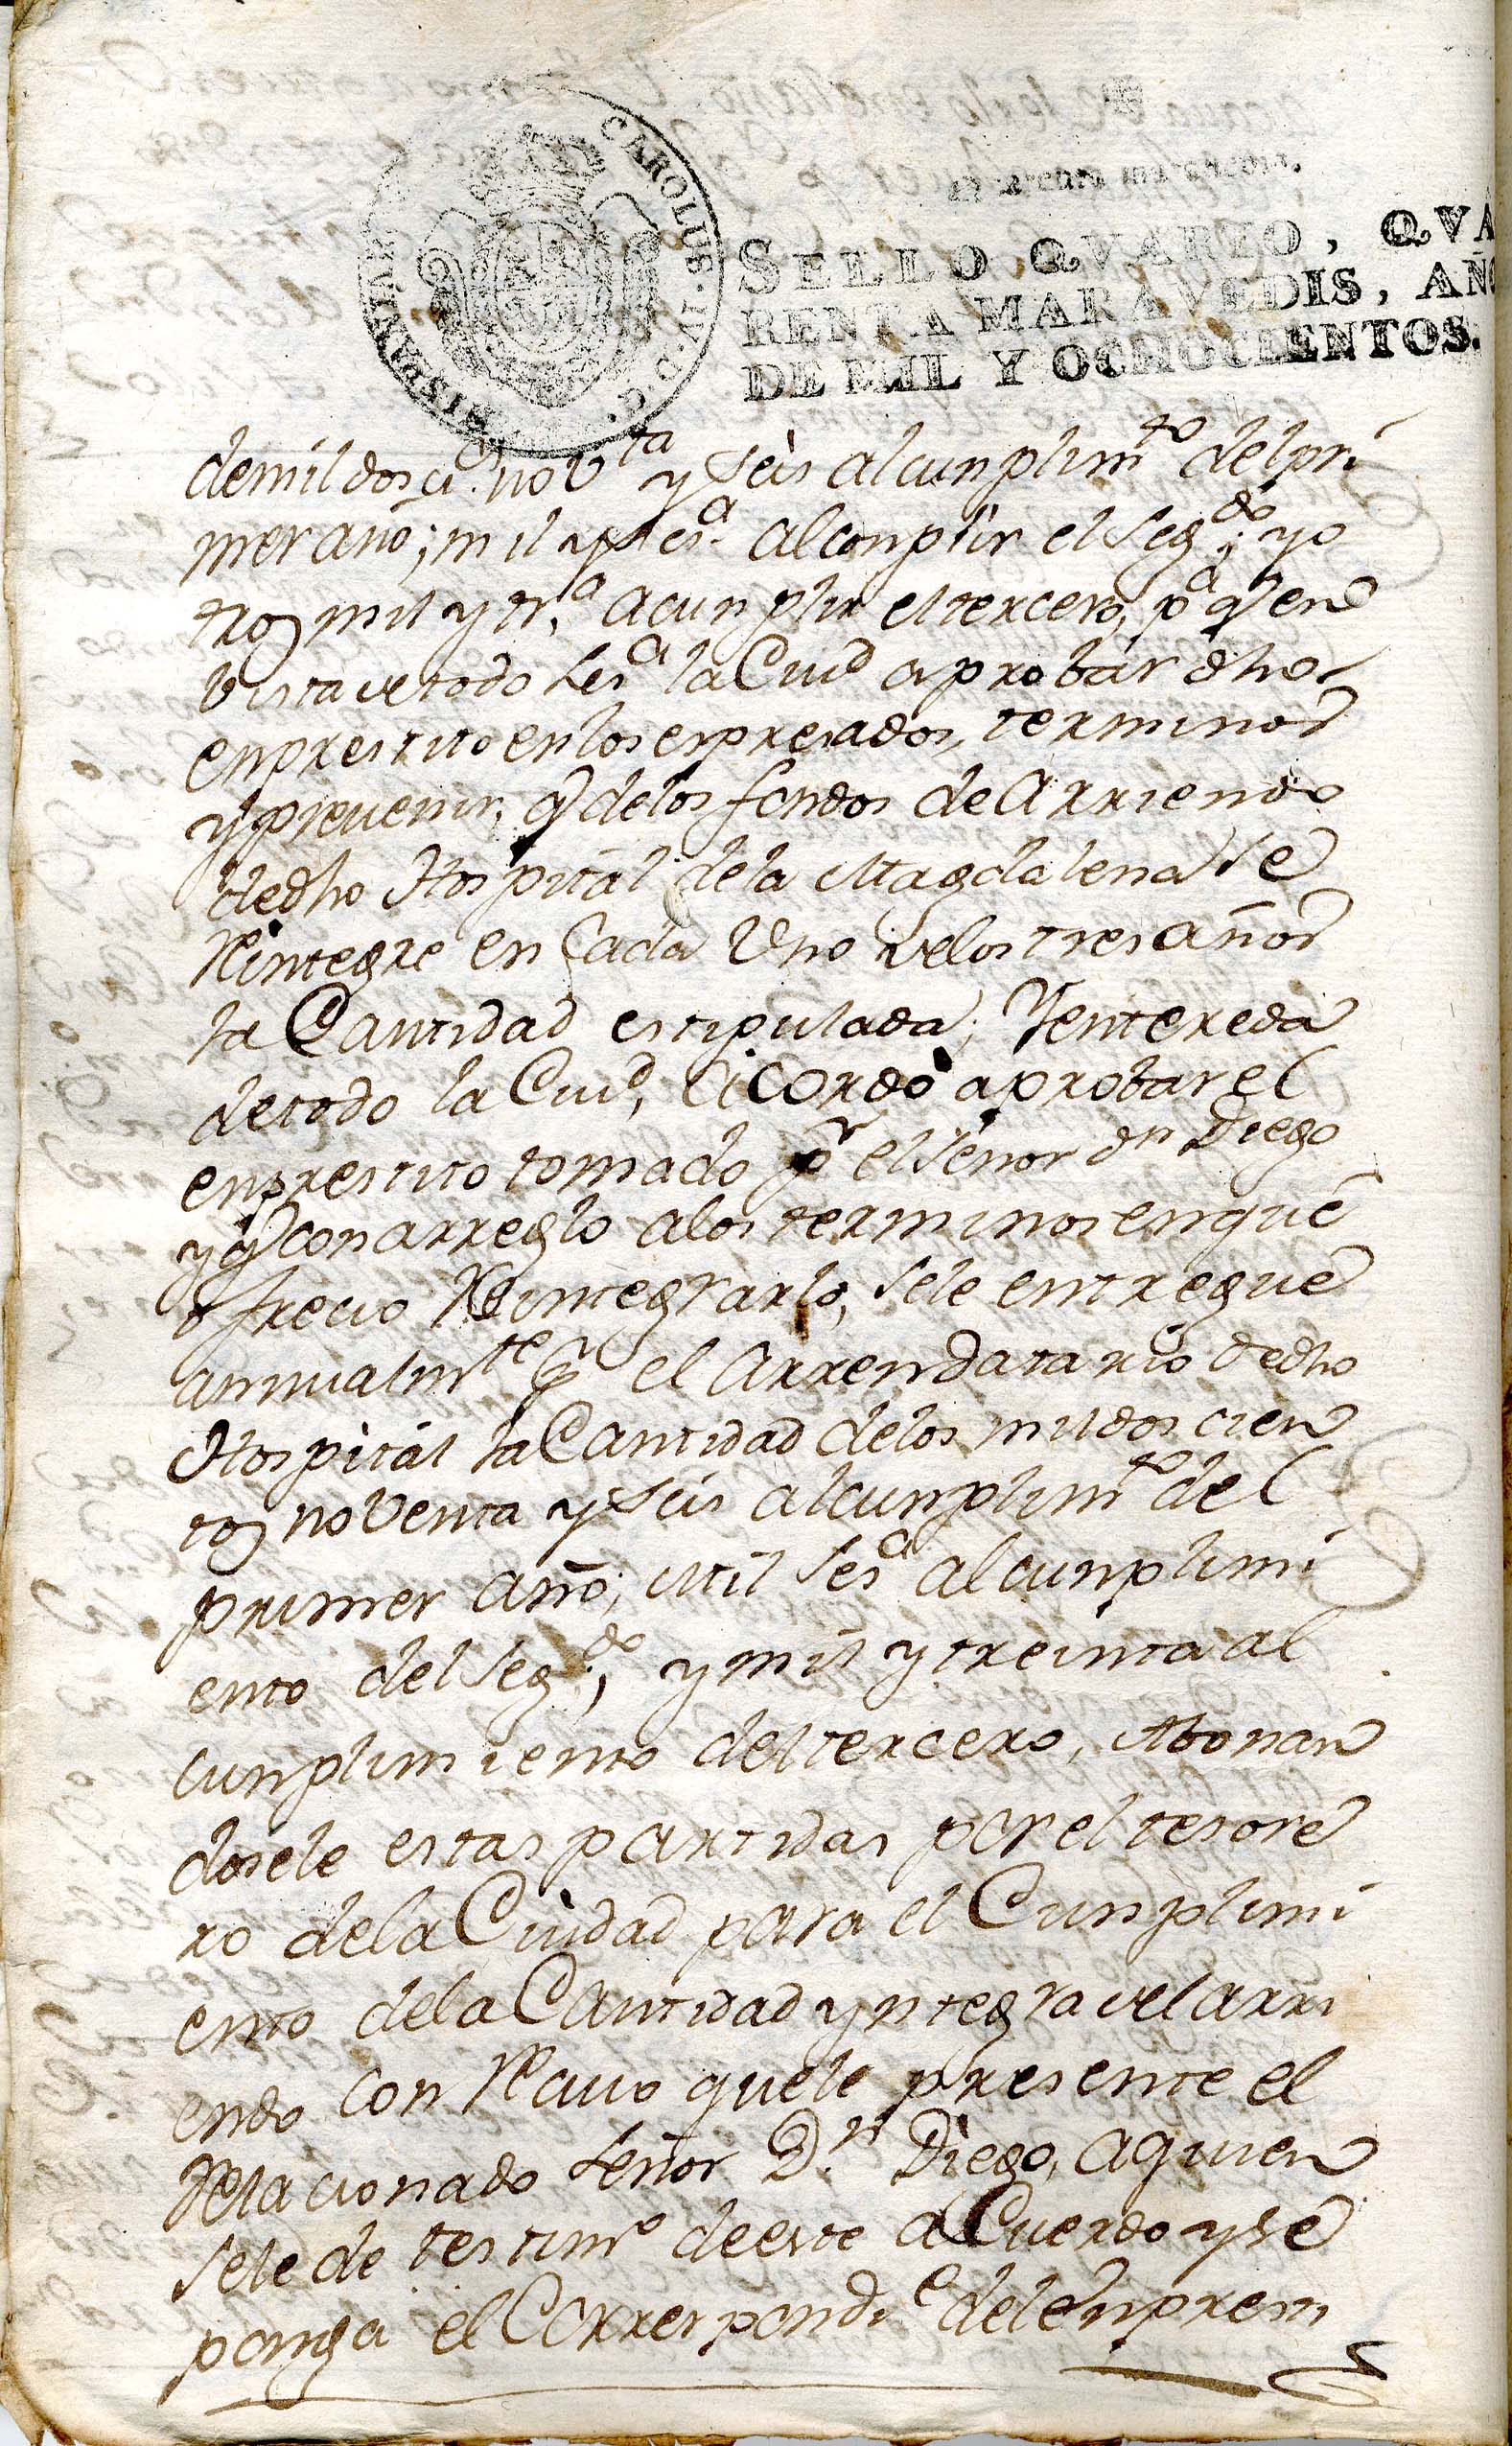 CAROLUS · IV · D · G ·
HISPANIAR
SELLO QVARTO, QVA
RENTA MARAVEDIS, AÑO
DE MIL Y OCHOCIENTOS.
demil dosci.ᵒ novᵗᵃ y seis alcunplimᵗᵒ del pri
mer año; mil y sesᵃ al conplir el segᵈᵒ; yo
tros mil y trᵃ a cunplir el tercero, pᵃ q̃ en
vista de todo sesᵃ la Ciudᵈ aprobár dho
enprestito en los espresados, terminos
y prevenir, q̃ delos fondos de Arriendo
dedho Hospitál dela Magdalena se
Reintegre en Cada Uno delos tres años
la Cantidad estipulada; Yentereda
detodo la Ciudᵈ, Acordò aprobar el
enprestito tomado pʳ el señor dⁿ Diego
y q̃ con arreglo alos terminos en que
ofrecio Reintegrarlo, sele entregue
annualmᵗᵉ pʳ el Arrendatario dedho
Hospitál la Cantidad delos mil dos cien
tos noventa y seis al cunplimᵗᵒ del
primer año; Mil sesᵃ al cunplimi
ento del segᵈᵒ; y mil y treinta al
cunplimiento del tercero, Abonan
dosele estas partidas por el tesore
ro dela Ciudad para el Cunplimi
ento dela Cantidad yntegra del arri
endo con Recivo quele presente el
Relacionado Señor D.ⁿ Diego, aquien
sele de testimᵒ deeste aCuerdo y se
ponga el Correspondᵉ del enpres